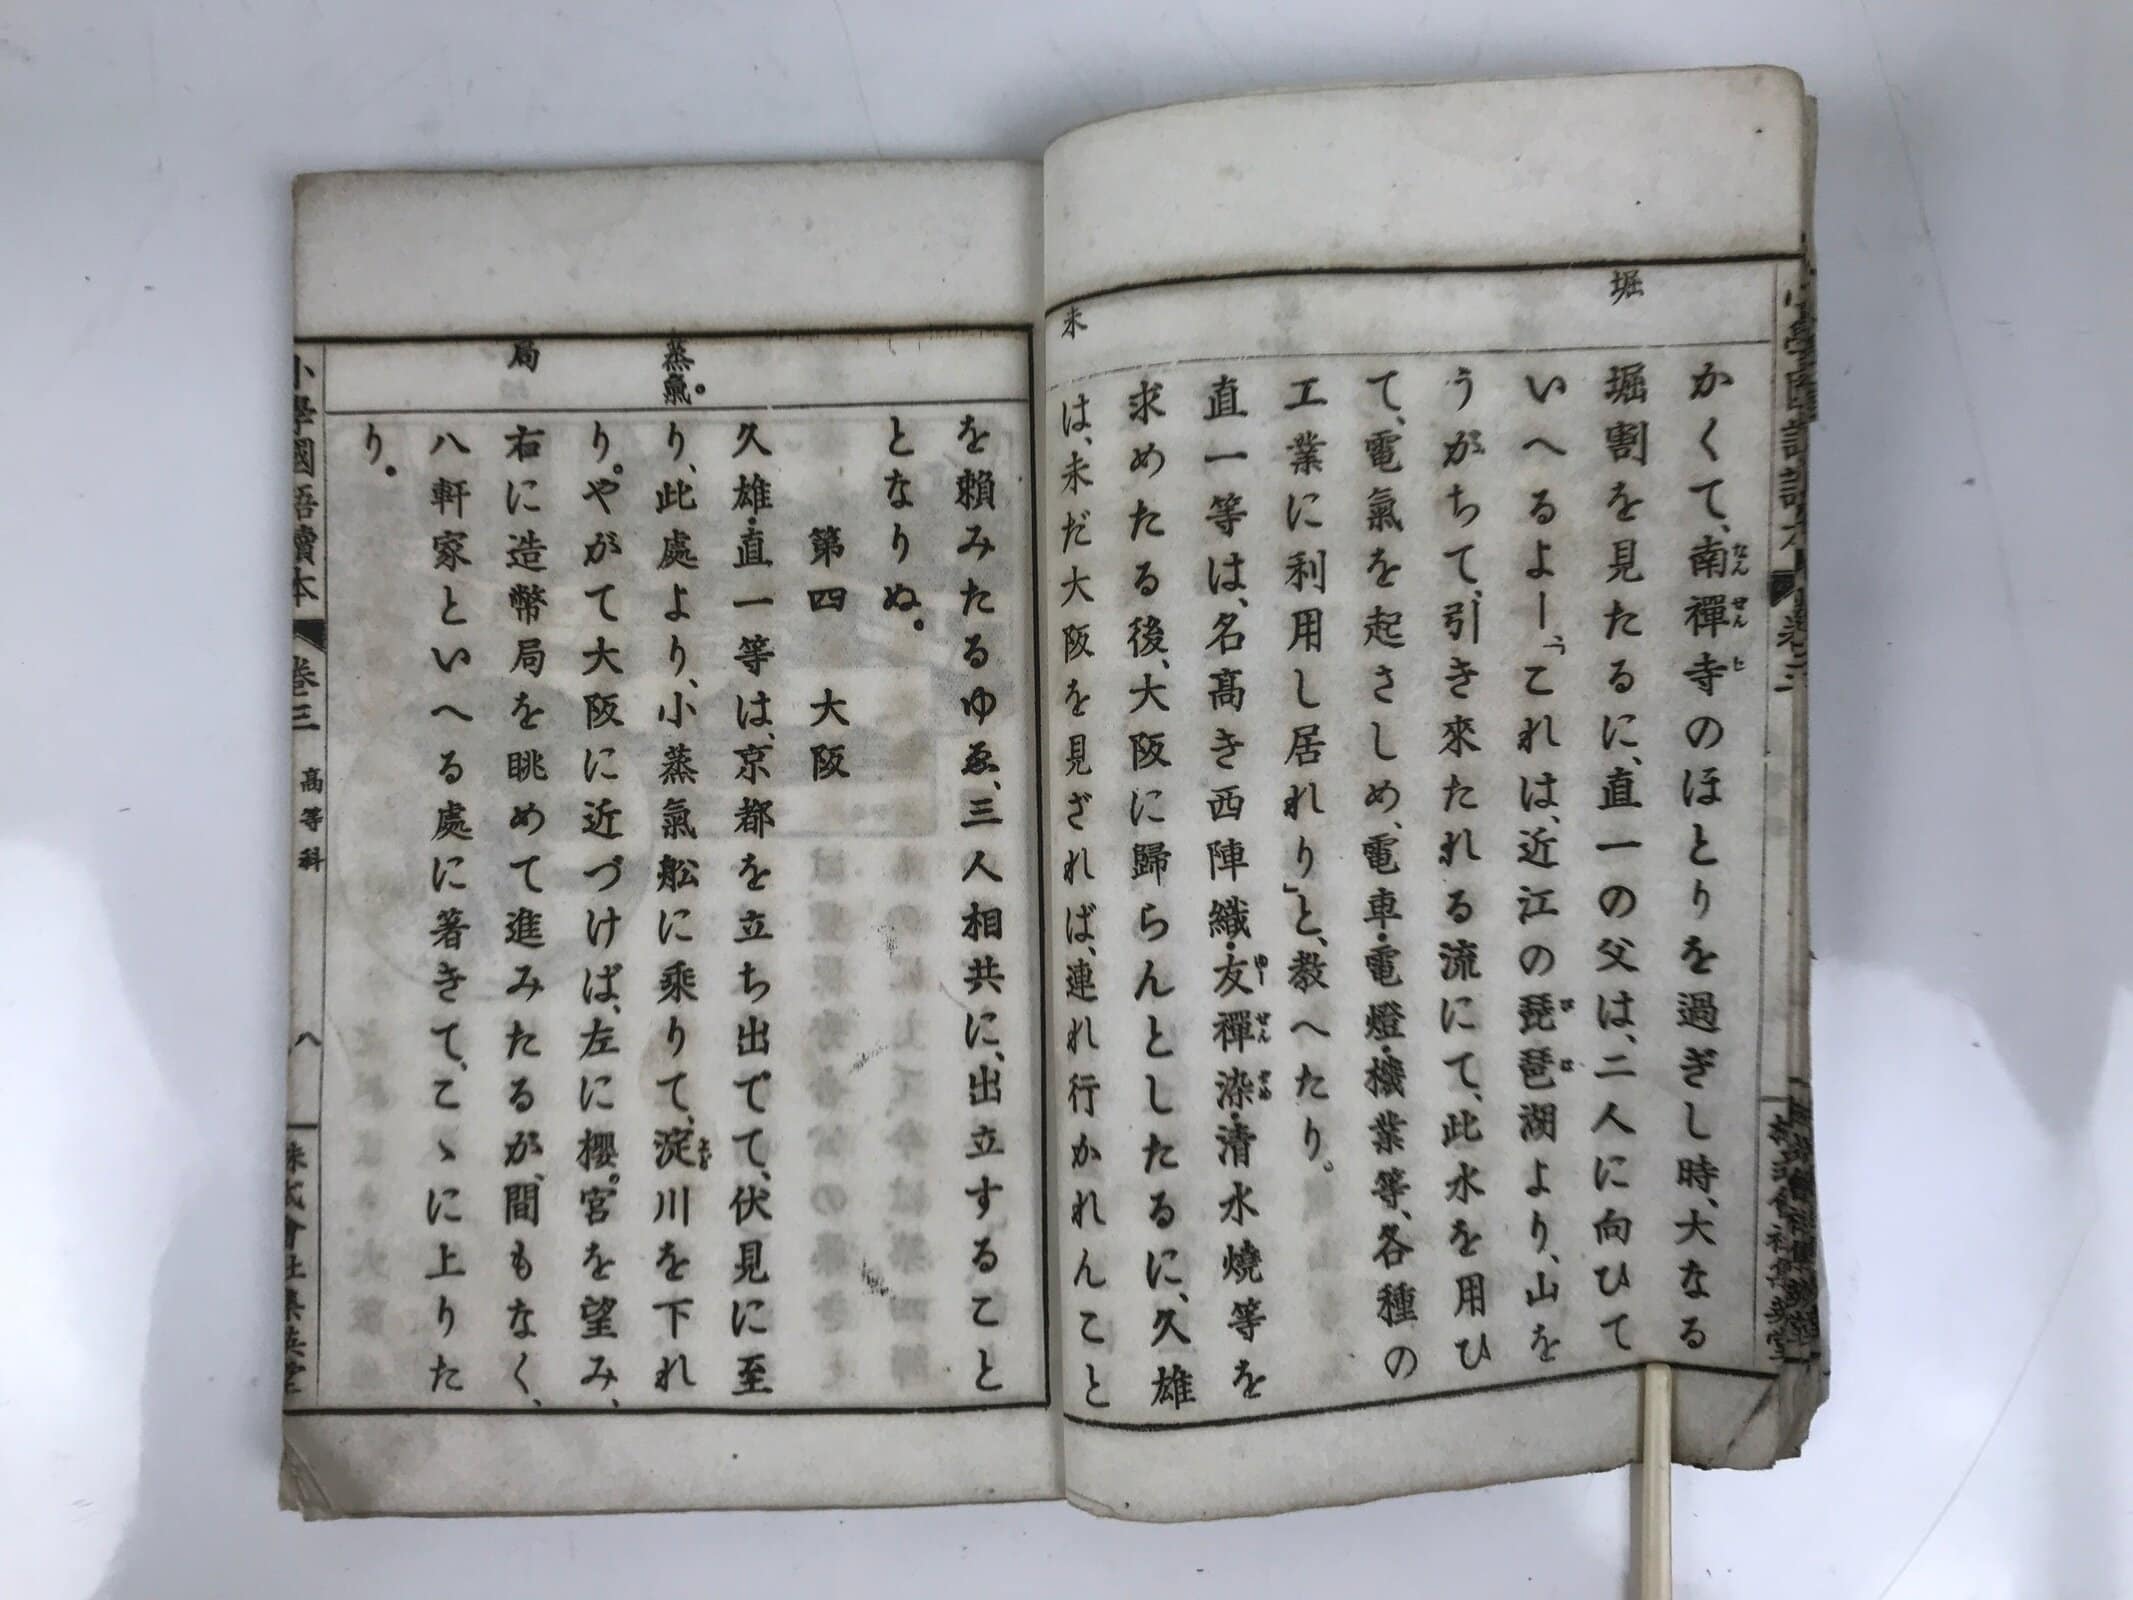 堀
未
かくて、南禪寺のほとりを過ぎし時、大なる
堀割を見たるに、直一の父は、二人に向ひて
いへるよー、「これは、近江の琵琶湖より、山を
うがちて、引き來たれる流にて、此水を用ひ
て、電氣を起さしめ、電車・電燈・機業等、各種の
工業に利用し居れり」と、教へたり。
直一等は、名高き西陣織・友禪染・清水燒等を
求めたる後、大阪に歸らんとしたるに、久雄
は、未だ大阪を見ざれば、連れ行かれんこと
蒸氣。
局
を賴みたるゆゑ、三人相共に、出立することと
となりぬ。
第四 大阪
久雄・直一等は、京都を立ち出でて、伏見に至
り、此處より、小蒸氣舩に乘りて、淀川を下れ
り。やがて大阪に近づけば、左に櫻。宮を望み、
右に造幣局を眺めて進みたるが、間もなく、
八軒家といへる處に著きて、こゝに上りた
り。
小學國語讀本 卷三 高等科 八 株式會社集英堂